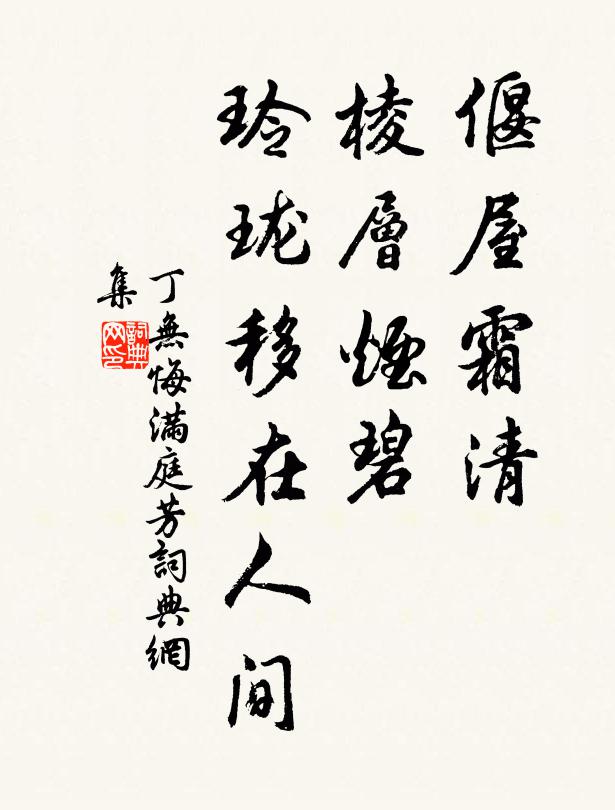 偃屋霜清
棱層煙碧
玲珑移在人间
丁無悔滿庭芳詞典網
集
詞典
网印